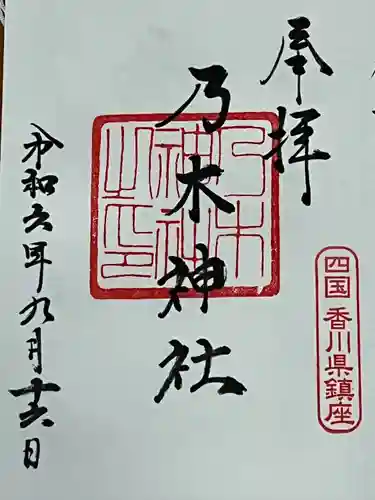 奉拝
四国 香川県鎮座
乃木神社
乃木
神社
之印
令和六年九月十六日